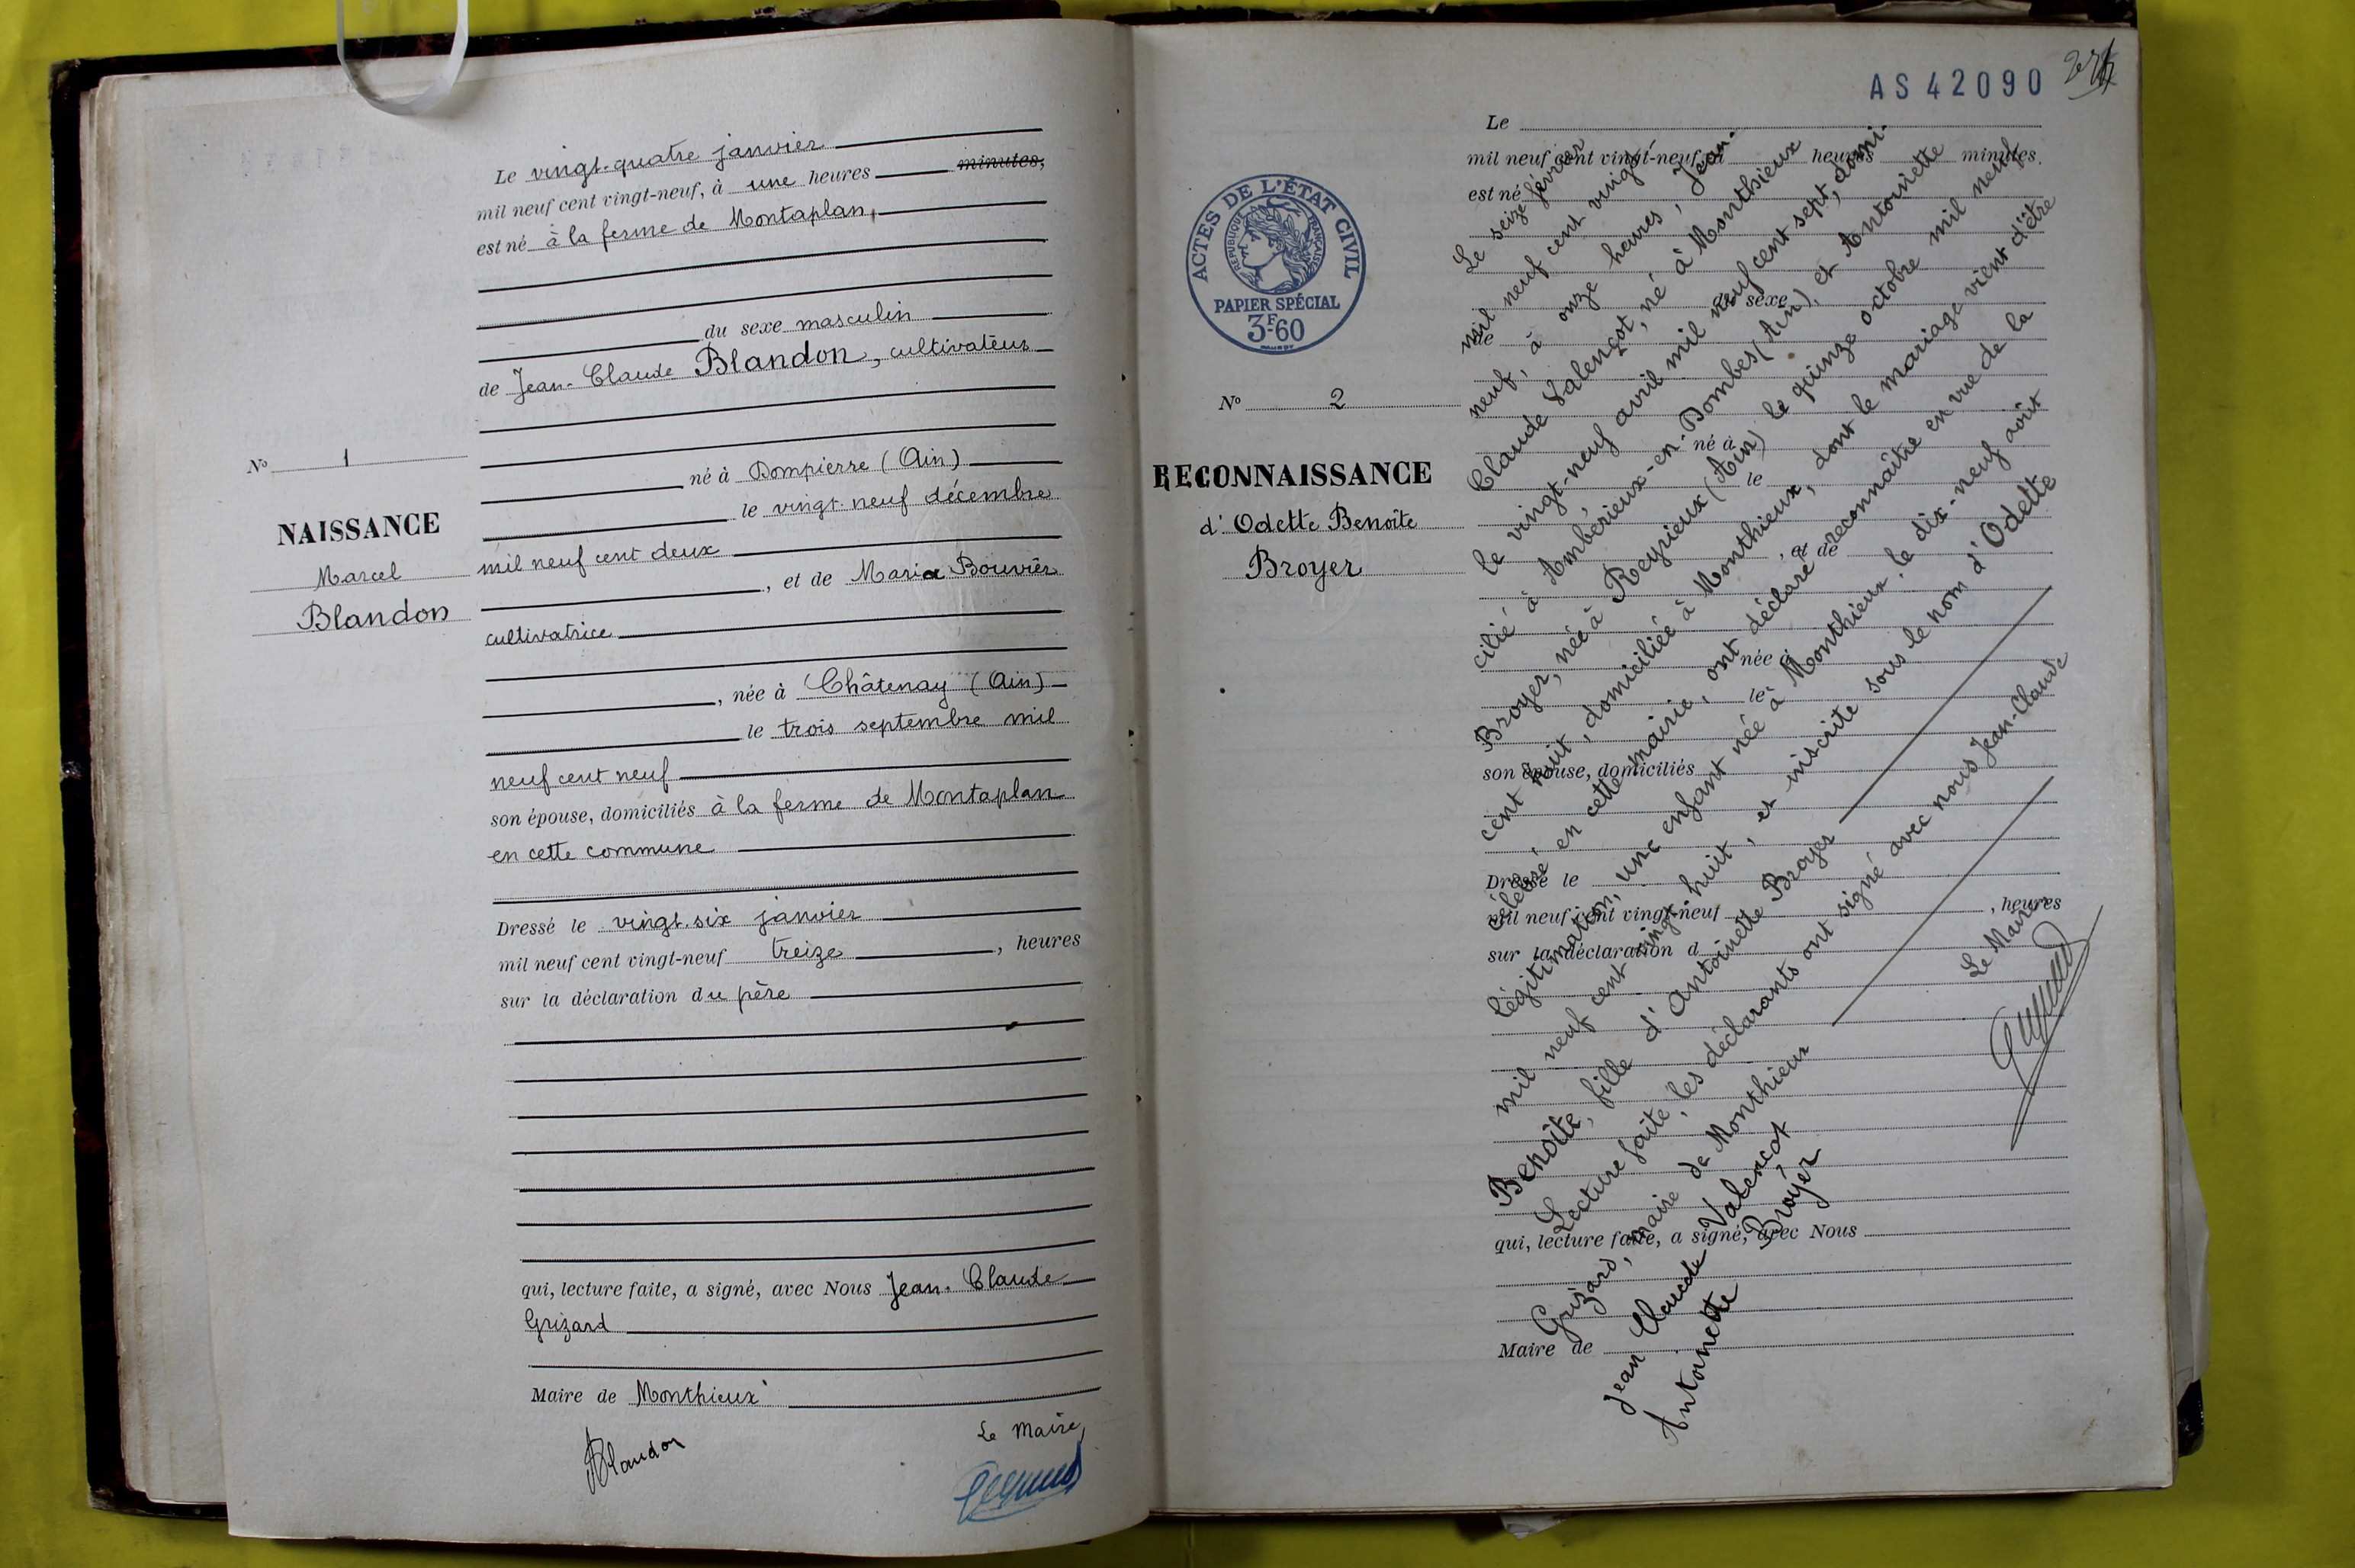 Le vingt-quatre janvier
mil neuf cent vingt-neuf, à une heures minutes,
est né à la ferme de Montaplan,
du sexe masculin
de Jean-Claude Blandon, cultivateur
né à Dompierre (Ain)
le vingt-neuf décembre
mil neuf cent deux
, et de Maria Bouvier
cultivatrice
, née à Châtenay (Ain)
le trois septembre mil
neuf cent neuf
son épouse, domiciliés à la ferme de Montaplan
en cette commune
Dressé le vingt-six janvier
mil neuf cent vingt-neuf treize, heures
sur la déclaration du père
qui, lecture faite, a signé, avec Nous Jean-Claude
Grizard
Maire de Monthieux
Le Maire,
Blandon
N° 1
NAISSANCE
Marcel
Blandon
AS 42090
ACTES DE L'ÉTAT CIVIL
RÉPUBLIQUE FRANÇAISE
PAPIER SPÉCIAL
3F60
N° 2
RECONNAISSANCE
d'Odette Benoîte
Broyer
Le
mil neuf cent vingt-neuf, à heures minutes.
est né
du sexe
de
né à
le
, et de
née à
le
son épouse, domiciliés
Dressé le
mil neuf cent vingt-neuf , heures
sur la déclaration d
qui, lecture faite, a signé, avec Nous
Maire de
Le seize février
mil neuf cent vingt-
neuf, à onze heures, Jean-
Claude Valençot, né à Monthieux
le vingt-neuf avril mil neuf cent sept, domi-
cilié à Ambérieux-en-Dombes (Ain), et Antoinette
Broyer, née à Reyrieux (Ain) le quinze octobre mil neuf
cent huit, domiciliée à Monthieux, dont le mariage vient d'être
célébré en cette mairie, ont déclaré reconnaître en vue de la
légitimation, une enfant née à Monthieux, le dix-neuf août
mil neuf cent vingt-huit, et inscrite sous le nom d'Odette
Benoîte, fille d'Antoinette Broyer
Lecture faite, les déclarants ont signé avec nous Jean-Claude
Grizard, maire de Monthieux
Jean Claude Valençot
Antoinette Broyer
Le Maire,